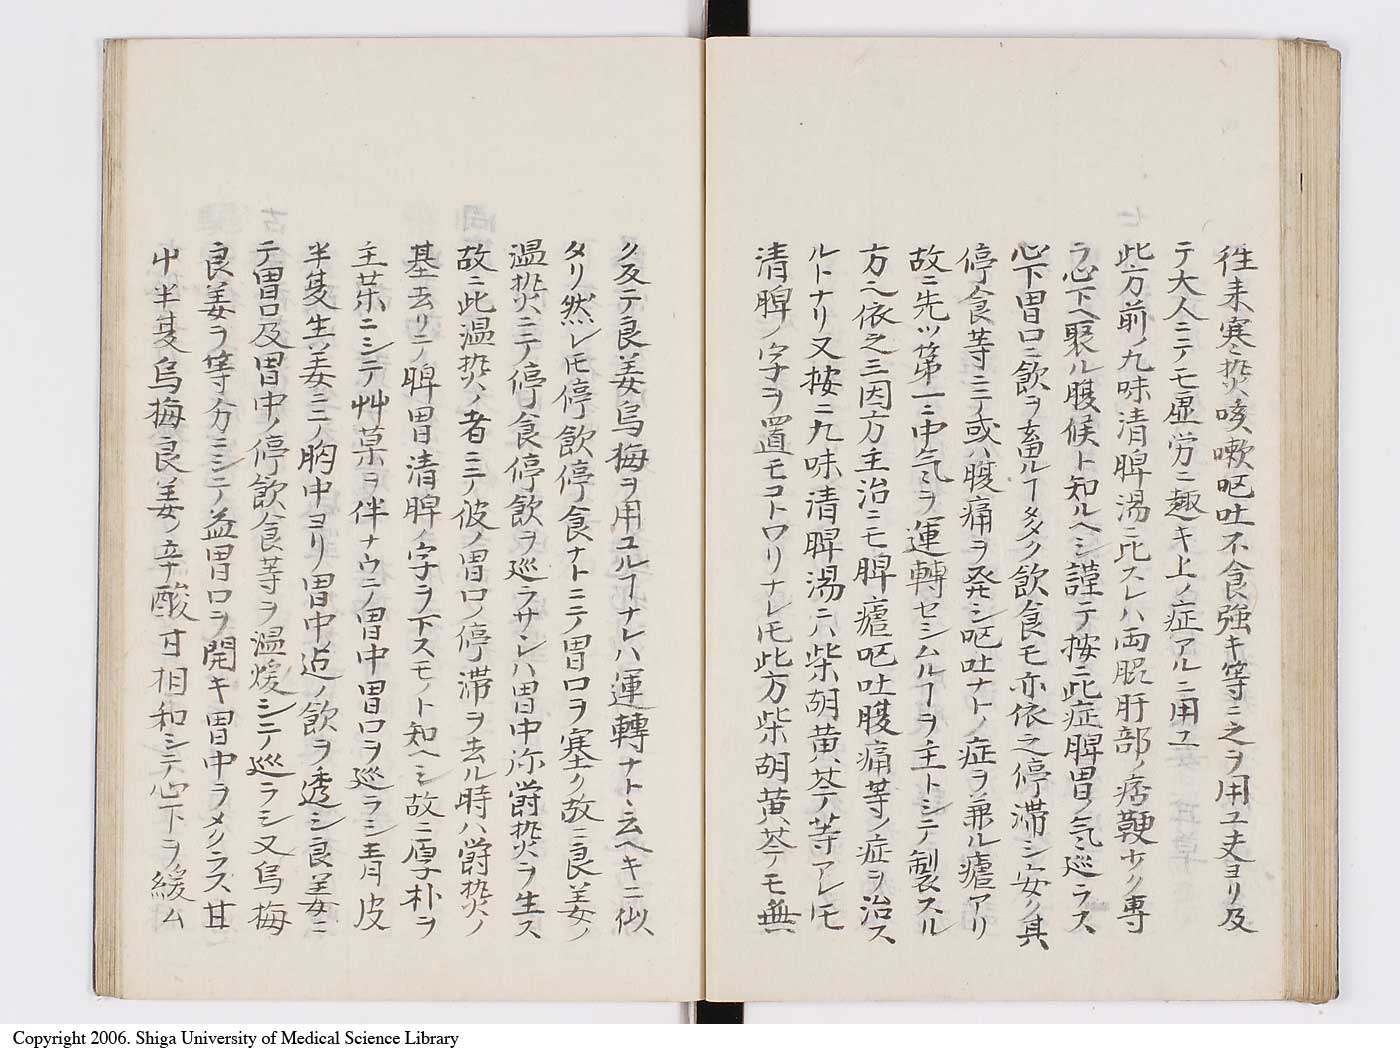 往来寒熱咳嗽呕吐不食強キ等ニ之ヲ用ユ丈ヨリ及
テ大人ニテモ虚労ニ趣キ上ノ症アルニ用ユ
此方前ノ九味清脾湯ニ比スレハ両脇肝部ノ痞鞕少ク専
ラ心下ヘ聚ル腹候ト知ルヘシ謹テ按ニ此症脾胃ノ気巡ラス
心下胃口ニ飲ヲ畜ルヿ多ク飲食モ亦依之停滞シ安ク其
停食等ニテ或ハ腹痛ヲ発シ呕吐ナトノ症ヲ兼ル瘧アリ
故ニ先ツ第一ニ中気ヲ運轉セシムルヿヲ主トシテ製スル
方ヘ依之三因方主治ニモ脾瘧呕吐腹痛等ノ症ヲ治ス
ルトナリ又按ニ九味清脾湯ニハ柴胡黄芩等アレ𪜈
清脾ノ字ヲ置モコトワリナレ𪜈此方柴胡黄芩モ無
ク反テ良姜烏梅ヲ用ユルヿナレハ運轉ナト云ヘキニ似
タリ然レ𪜈停飲停食ナトニテ胃口ヲ塞ク故ニ良姜ノ
温熱ニテ停食停飲ヲ巡ラサレハ胃中弥欝熱ヲ生ス
故ニ此温熱ノ者ニテ彼ノ胃口ノ停滞ヲ去ル時ハ欝熱ノ
基去リテ脾胃清脾ノ字ヲ下スモノト知ヘシ故ニ厚朴ヲ
主菜ニシテ草菓ヲ伴ナウテ胃中胃口ヲ巡ラシ青皮
半夏生姜ニテ胸中ヨリ胃中迠ノ飲ヲ透シ良姜ニ
テ胃口及胃中ノ停飲食等ヲ温煖シテ巡ラシ又烏梅
良姜ヲ等分ニシテ益胃口ヲ開キ胃中ヲメクラス其
中半夏烏梅良姜ノ辛酸甘相和シテ心下ヲ緩ム
Copyright 2006. Shiga University of Medical Science Library